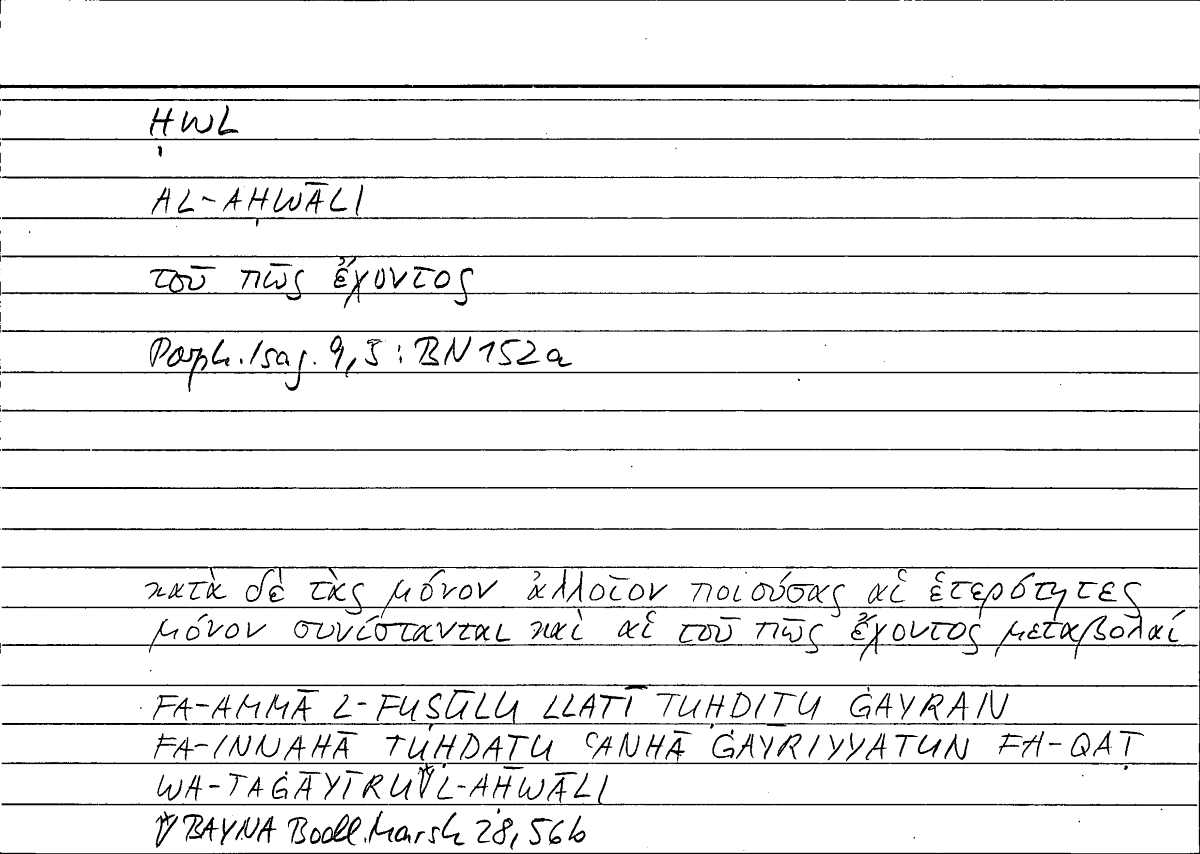 ḤWL
AL-AḤWĀLI
τοῦ πῶς ἔχοντος
Porph. Isag. 9, 5 : BN 152a
κατὰ δὲ τὰς μόνον ἀλλοῖον ποιούσας αἱ ἑτερότητες
μόνον συνίστανται καὶ αἱ τοῦ πῶς ἔχοντος μεταβολαί
FA-AMMĀ L-FUṢŪLU LLATĪ TUḤDIṮU ĠAYRAN
FA-INNAHĀ TUḤDAṮU ʿANHĀ ĠAYRIYYATUN FA-QAṬ
WA-TAĠĀYĪRU* L-AḤWĀLI
* BAYNA Bodl. Marsh 28, 56b